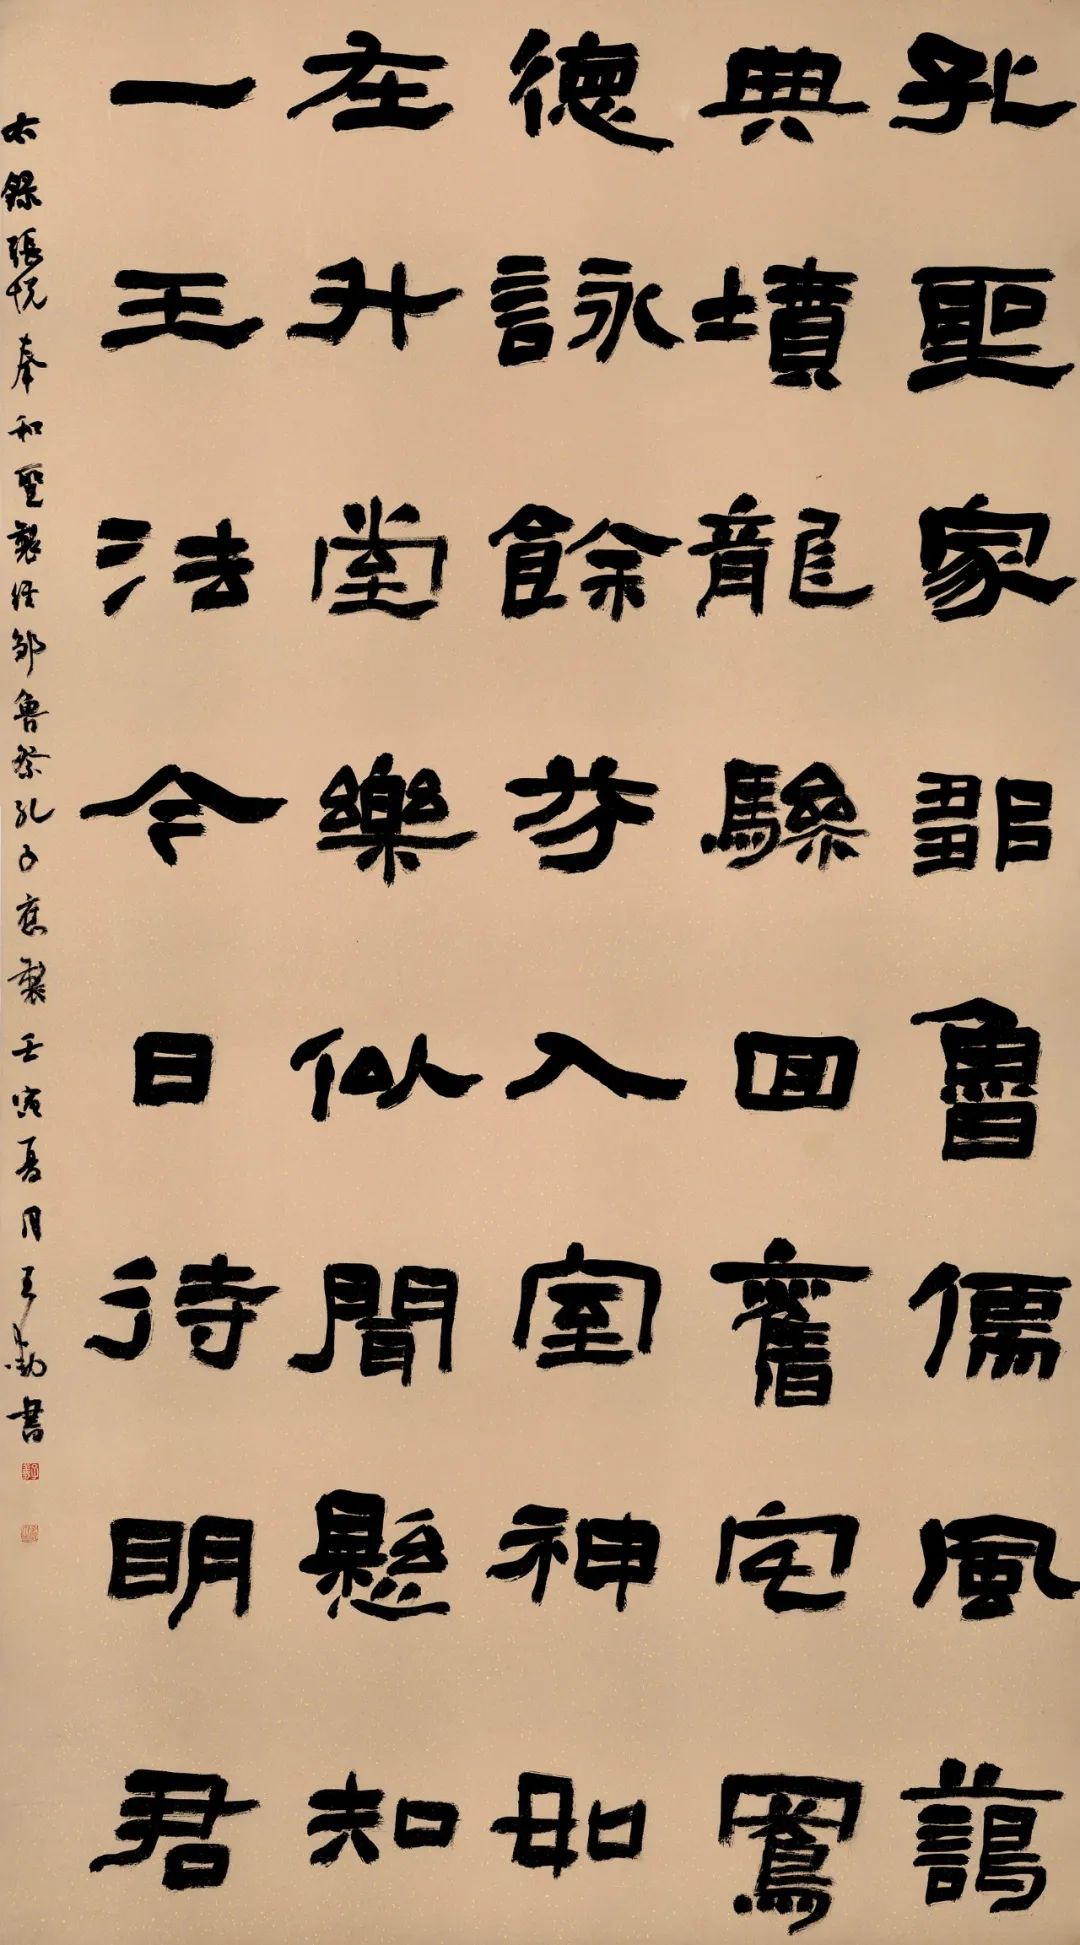 孔聖家鄒魯儒風藹
典墳龍驂回舊宅鳳
德詠餘芬入室神如
在升堂樂似聞懸知
一王法今日待明君
右錄張悅奉和聖製經鄒魯祭孔子應製壬寅夏月王勁書